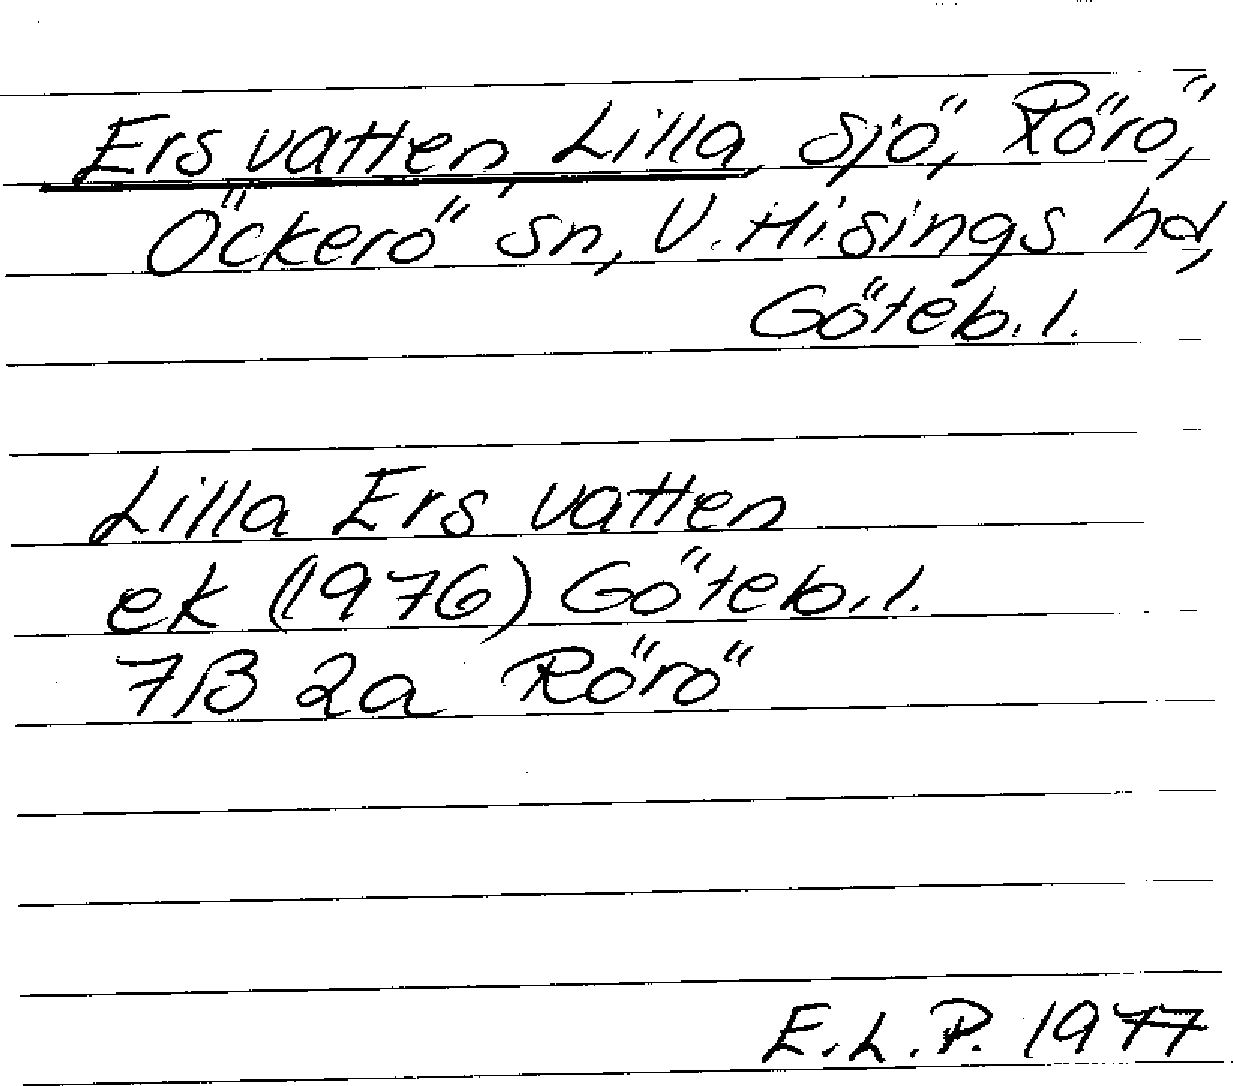 Ers vatten, Lilla, sjö, Rörö,
Öckerö sn, V. Hisings hd,
Göteb. l.
Lilla Ers vatten
ek (1976) Göteb. l.
7B 2a Rörö
E.L.P. 1977